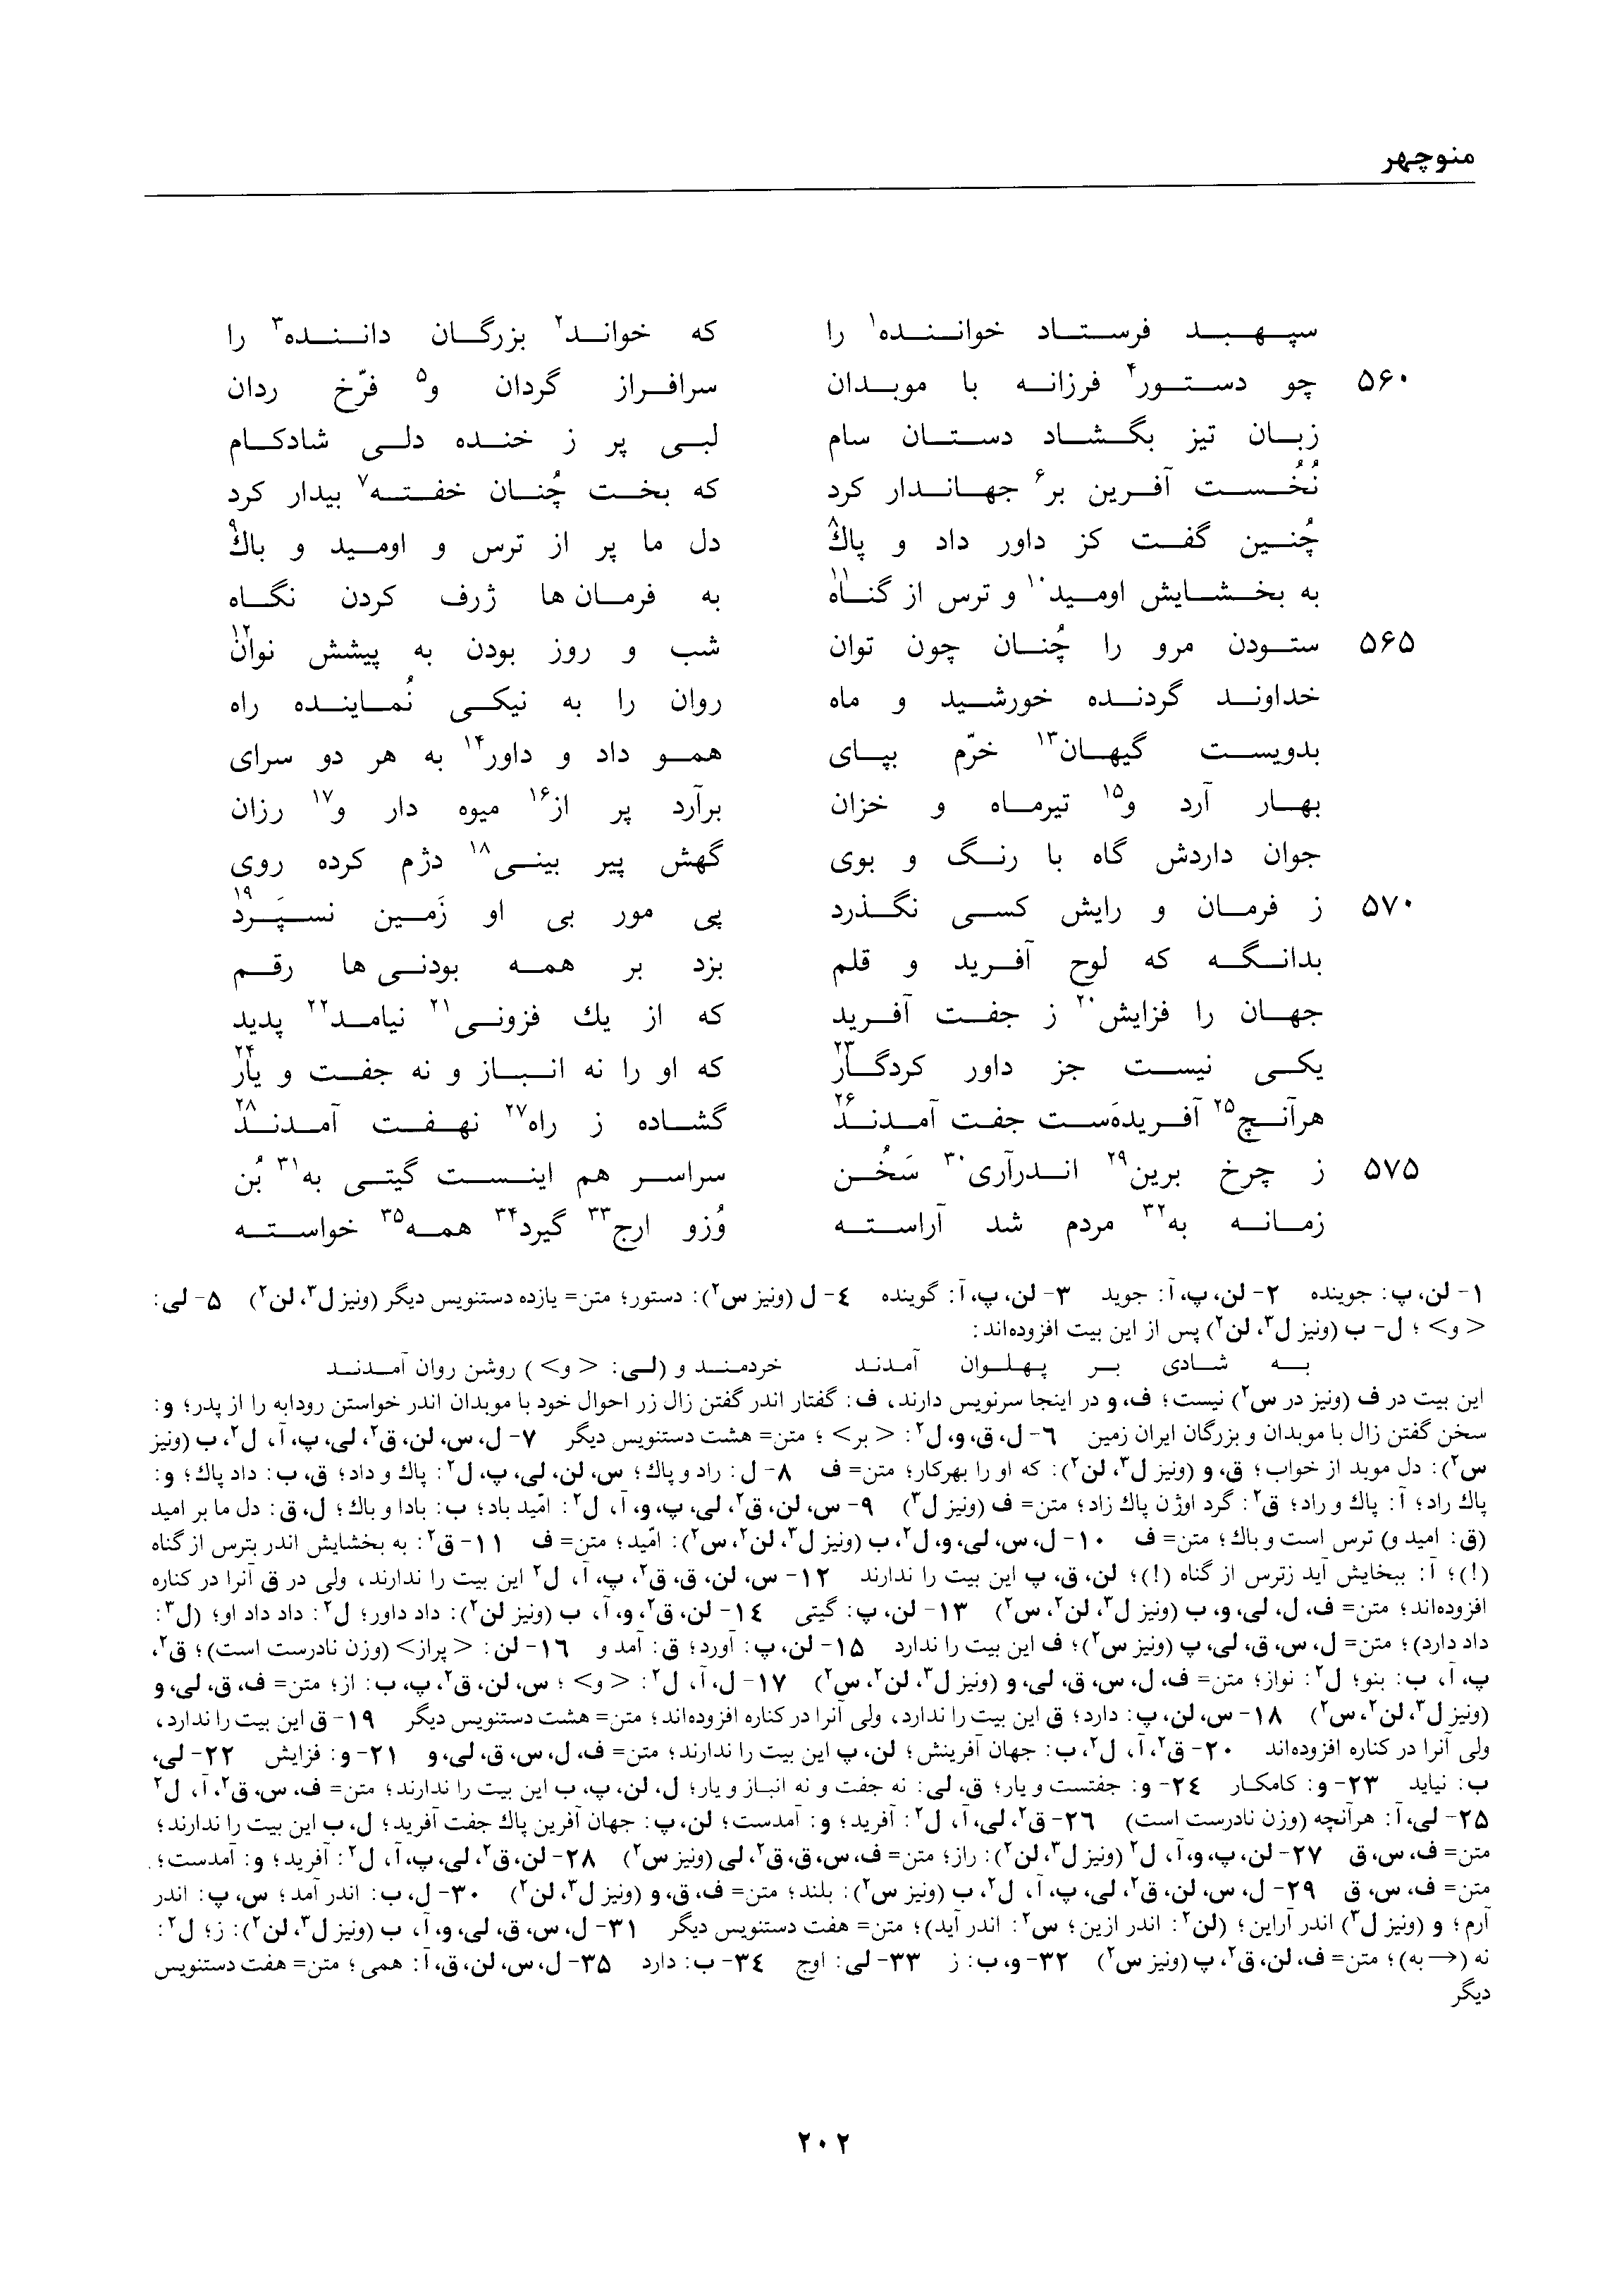 منوچهر
سپهبد فرستاد خواننده¹ را که خواند² بزرگان داننده³ را
۵۶۰ چو دستور⁴ فرزانه با موبدان سرافراز گردان و⁵ فرّخ ردان
زبان تیز بگشاد دستان سام لبی پر ز خنده دلی شادکام
نُخُست آفرین بر⁶ جهاندار کرد که بخت چُنان خفته⁷ بیدار کرد
چُنین گفت کز داور داد و پاك⁸ دل ما پر از ترس و اومید و باك⁹
به بخشایش اومید¹⁰ و ترس از گناه¹¹ به فرمان‌ها ژرف کردن نگاه
۵۶۵ ستودن مرو را چُنان چون توان شب و روز بودن به پیشش نوان¹²
خداوند گردنده خورشید و ماه روان را به نیکی نُماینده راه
بدویست گیهان¹³ خرّم بپای همو داد و داور¹⁴ به هر دو سرای
بهار آرد و¹⁵ تیرماه و خزان برآرد پر از¹⁶ میوه دار و¹⁷ رزان
جوان داردش گاه با رنگ و بوی گهش پیر بینی¹⁸ دژم کرده روی
۵۷۰ ز فرمان و رایش کسی نگذرد پی مور بی او زَمین نسپَرد¹⁹
بدانگه که لوح آفرید و قلم بزد بر همه بودنی‌ها رقم
جهان را فزایش²⁰ ز جفت آفرید که از یك فزونی²¹ نیامد²² پدید
یکی نیست جز داور کردگار²³ که او را نه انباز و نه جفت و یار²⁴
هرآنچ²⁵ آفریده‌ست جفت آمدند²⁶ گشاده ز راه²⁷ نهفت آمدند²⁸
۵۷۵ ز چرخ برین²⁹ اندرآری³⁰ سَخُن سراسر هم اینست گیتی به³¹ بُن
زمانه به³² مردم شد آراسته وُزو ارج³³ گیرد³⁴ همه³⁵ خواسته
۱- لن، پ: جوینده ۲- لن، پ، آ: جوید ۳- لن، پ، آ: گوینده ۴- ل (ونیز س²): دستور؛ متن= یازده دستنویس دیگر (ونیز ل³، لن²) ۵- لی:
< و> ؛ ل- ب (ونیز ل³، لن²) پس از این بیت افزوده‌اند:
به شادی بر پهلوان آمدند خردمند و (لی: < و> ) روشن روان آمدند
این بیت در ف (ونیز در س²) نیست؛ ف، و در اینجا سرنویس دارند، ف: گفتار اندر گفتن زال زر احوال خود با موبدان اندر خواستن رودابه را از پدر؛ و:
سخن گفتن زال با موبدان و بزرگان ایران زمین ۶- ل، ق، و، ل²: < بر> ؛ متن= هشت دستنویس دیگر ۷- ل، س، لن، ق²، لی، پ، آ، ل²، ب (ونیز
س²): دل موبد از خواب؛ ق، و (ونیز ل³، لن²): که او را بهرکار؛ متن= ف ۸- ل: راد و پاك؛ س، لن، لی، پ، ل²: پاك و داد؛ ق، ب: داد پاك؛ و:
پاك راد؛ آ: پاك و راد؛ ق²: گرد اوژن پاك زاد؛ متن= ف (ونیز ل³) ۹- س، لن، ق²، لی، پ، و، آ، ل²: امّید باد؛ ب: بادا و باك؛ ل، ق: دل ما بر امید
(ق: امید و) ترس است و باك؛ متن= ف ۱۰- ل، س، لی، و، ل²، ب (ونیز ل³، لن²، س²): امّید؛ متن= ف ۱۱- ق²: به بخشایش اندر بترس از گناه
(!)؛ آ: ببخایش آید زترس از گناه (!)؛ لن، ق، پ این بیت را ندارند ۱۲- س، لن، ق، ق²، پ، آ، ل² این بیت را ندارند، ولی در ق آنرا در کناره
افزوده‌اند؛ متن= ف، ل، لی، و، ب (ونیز ل³، لن²، س²) ۱۳- لن، پ: گیتی ۱۴- لن، ق²، و، آ، ب (ونیز لن²): داد داور؛ ل²: داد داد او؛ (ل³:
داد دارد)؛ متن= ل، س، ق، لی، پ (ونیز س²)؛ ف این بیت را ندارد ۱۵- لن، پ: آورد؛ ق: آمد و ۱۶- لن: < پراز> (وزن نادرست است)؛ ق²،
پ، آ، ب: بنو؛ ل²: نواز؛ متن= ف، ل، س، ق، لی، و (ونیز ل³، لن²، س²) ۱۷- ل، آ، ل²: < و> ؛ س، لن، ق²، پ، ب: از؛ متن= ف، ق، لی، و
(ونیز ل³، لن²، س²) ۱۸- س، لن، پ: دارد؛ ق این بیت را ندارد، ولی آنرا در کناره افزوده‌اند؛ متن= هشت دستنویس دیگر ۱۹- ق این بیت را ندارد،
ولی آنرا در کناره افزوده‌اند ۲۰- ق²، آ، ل²، ب: جهان آفرینش؛ لن، پ این بیت را ندارند؛ متن= ف، ل، س، ق، لی، و ۲۱- و: فزایش ۲۲- لی،
ب: نیاید ۲۳- و: کامکار ۲۴- و: جفتست و یار؛ ق، لی: نه جفت و نه انباز و یار؛ ل، لن، پ، ب این بیت را ندارند؛ متن= ف، س، ق²، آ، ل²
۲۵- لی، آ: هرآنچه (وزن نادرست است) ۲۶- ق²، لی، آ، ل²: آفرید؛ و: آمدست؛ لن، پ: جهان آفرین پاك جفت آفرید؛ ل، ب این بیت را ندارند؛
متن= ف، س، ق ۲۷- لن، پ، و، آ، ل² (ونیز ل³، لن²): راز؛ متن= ف، س، ق، ق²، لی (ونیز س²) ۲۸- لن، ق²، لی، پ، آ، ل²: آفرید؛ و: آمدست؛
متن= ف، س، ق ۲۹- ل، س، لن، ق²، لی، پ، آ، ل²، ب (ونیز س²): بلند؛ متن= ف، ق، و (ونیز ل³، لن²) ۳۰- ل، ب: اندر آمد؛ س، پ: اندر
آرم؛ و (ونیز ل³) اندر آراین؛ (لن²: اندر ازین؛ س²: اندر آید)؛ متن= هفت دستنویس دیگر ۳۱- ل، س، ق، لی، و، آ، ب (ونیز ل³، لن²): ز؛ ل²:
نه (→ به)؛ متن= ف، لن، ق²، پ (ونیز س²) ۳۲- و، ب: ز ۳۳- لی: اوج ۳۴- ب: دارد ۳۵- ل، س، لن، ق، آ: همی؛ متن= هفت دستنویس
دیگر
۲۰۲